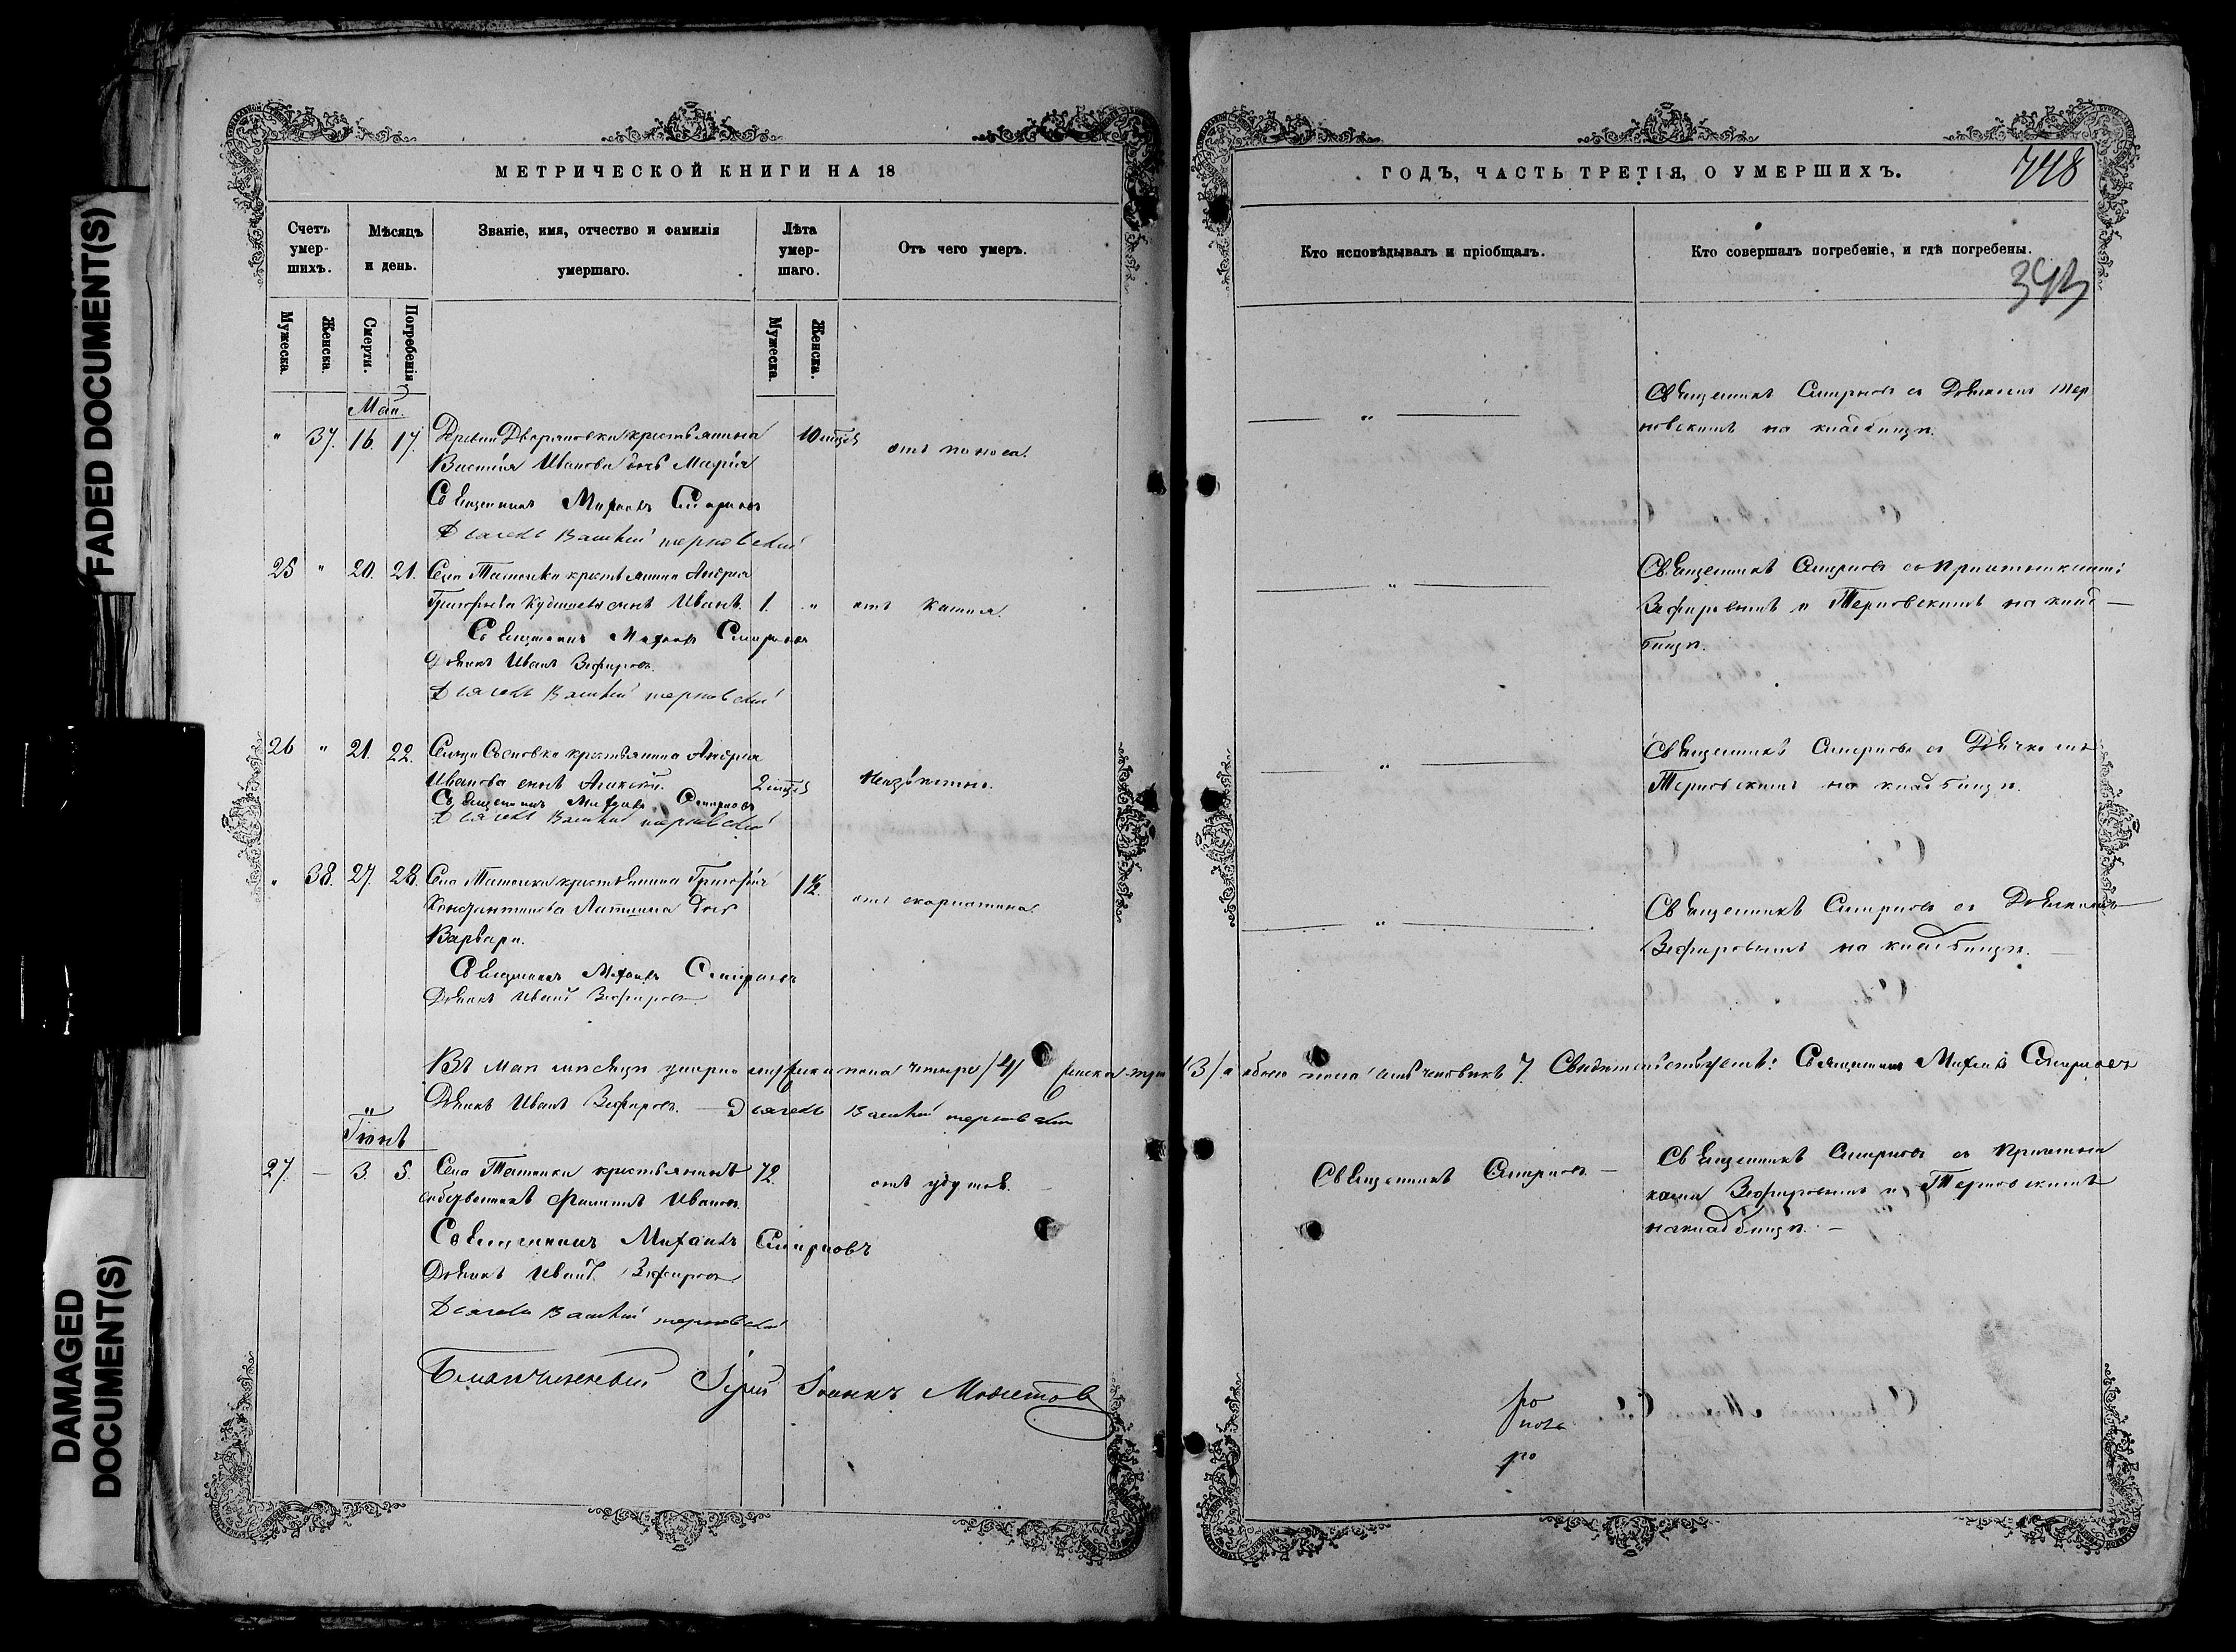 FADED DOCUMENT(S)
DAMAGED
DOCUMENT(S)
МЕТРИЧЕСКОЙ КНИГИ НА 18
Счетъ умер-шихъ.
Мѣсяцъ и день.
Званіе, имя, отчество и фамилія умершаго.
Лѣта умер-шаго.
Отъ чего умеръ.
Мужеска.
Женска.
Смерти.
Погребенія
Мужеска.
Женска.
Маія.
" 37. 16. 17. Древни Дворяновки крестьянина 10 мцѣв
Василія Иванова дочь Марія отъ поноса.
Священникъ Михаилъ Смирновъ
Дьячекъ Василій терновскій
25 " 20. 21. Села Татанки крестьянина Андрея
Григорьева сынъ Иванъ. 1. " отъ кашля.
Священникъ Михаилъ Смирновъ
Дьячекъ Иванъ Зефировъ.
Дьячекъ Василій терновскій
26 " 21. 22. Сельца Сосновки крестьянина Андрея
Иванова сынъ Алексѣй. 2 мцѣв неизвѣстно.
Священникъ Михаилъ Смирновъ
Дьячекъ Василій терновскій
" 38. 27. 28. Села Татанки крестьянина Григорія 1½.
Константинова дочь отъ скарлатина.
Варвара.
Священникъ Михаилъ Смирновъ
Дьячекъ Иванъ Зефировъ
Въ Маѣ мѣсяцѣ умерло мужеска пола четыре /4/ женска три /3/ а обоего пола семь человѣкъ 7. Свидѣтельствуетъ: Священникъ Михаилъ Смирновъ
Дьячекъ Иванъ Зефировъ. — Дьячекъ Василій терновскій
Іюнь
27. — 3. 5. Села Татанки крестьянинъ 72.
собственникъ Филиппъ Ивановъ. отъ удушья.
Священникъ Михаилъ Смирновъ
Дьячекъ Иванъ Зефировъ
Дьячекъ Василій терновскій
Благочинный Іерей Іоаннъ Модестовъ
ГОДЪ, ЧАСТЬ ТРЕТІЯ, О УМЕРШИХЪ.
748
Кто исповѣдывалъ и пріобщалъ.
Кто совершалъ погребеніе, и гдѣ погребены.
343
Священникъ Смирновъ съ Дьячкомъ Тер
новскимъ на кладбищѣ.
Священникъ Смирновъ съ Причетниками:
Зефировымъ и Терновскимъ на клад—
бищѣ.
Священникъ Смирновъ съ Дьячкомъ
Терновскимъ на кладбищѣ.
Священникъ Смирновъ съ Дьячкомъ
Зефировымъ на кладбищѣ. —
Священникъ Смирновъ —
Священникъ Смирновъ съ Причетни
ками Зефировымъ и Терновскимъ
на кладбищѣ. —